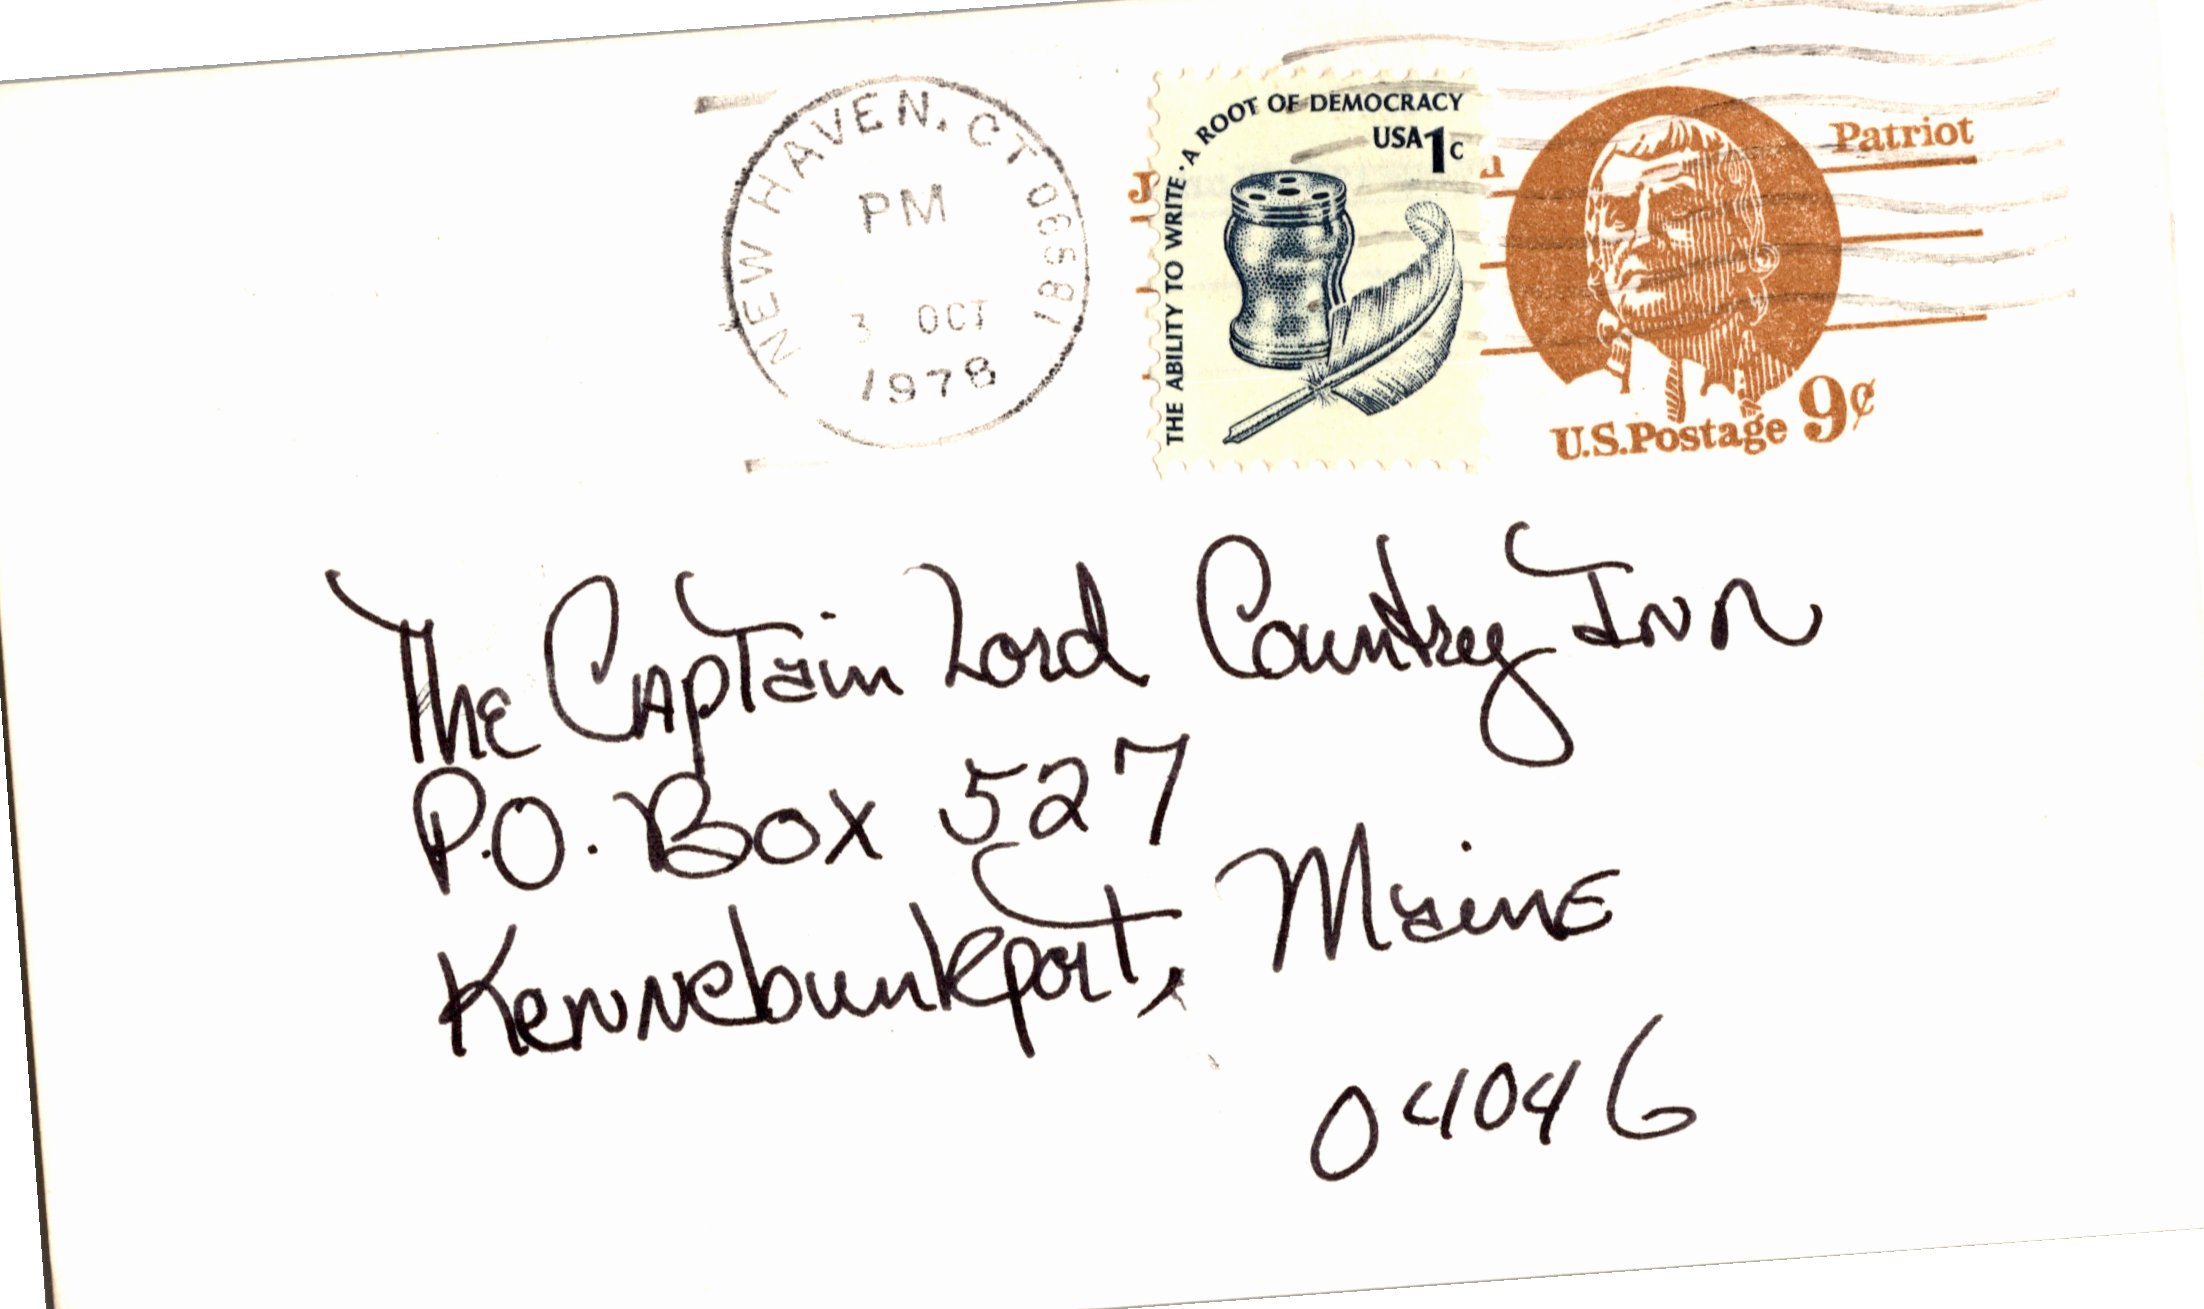 NEW HAVEN, CT 065
PM
3 OCT
1978
THE ABILITY TO WRITE · A ROOT OF DEMOCRACY
USA 1c
J
Patriot
U.S. Postage 9¢
The Captain Lord Country Inn
P.O. Box 527
Kennebunkport, Maine
04046